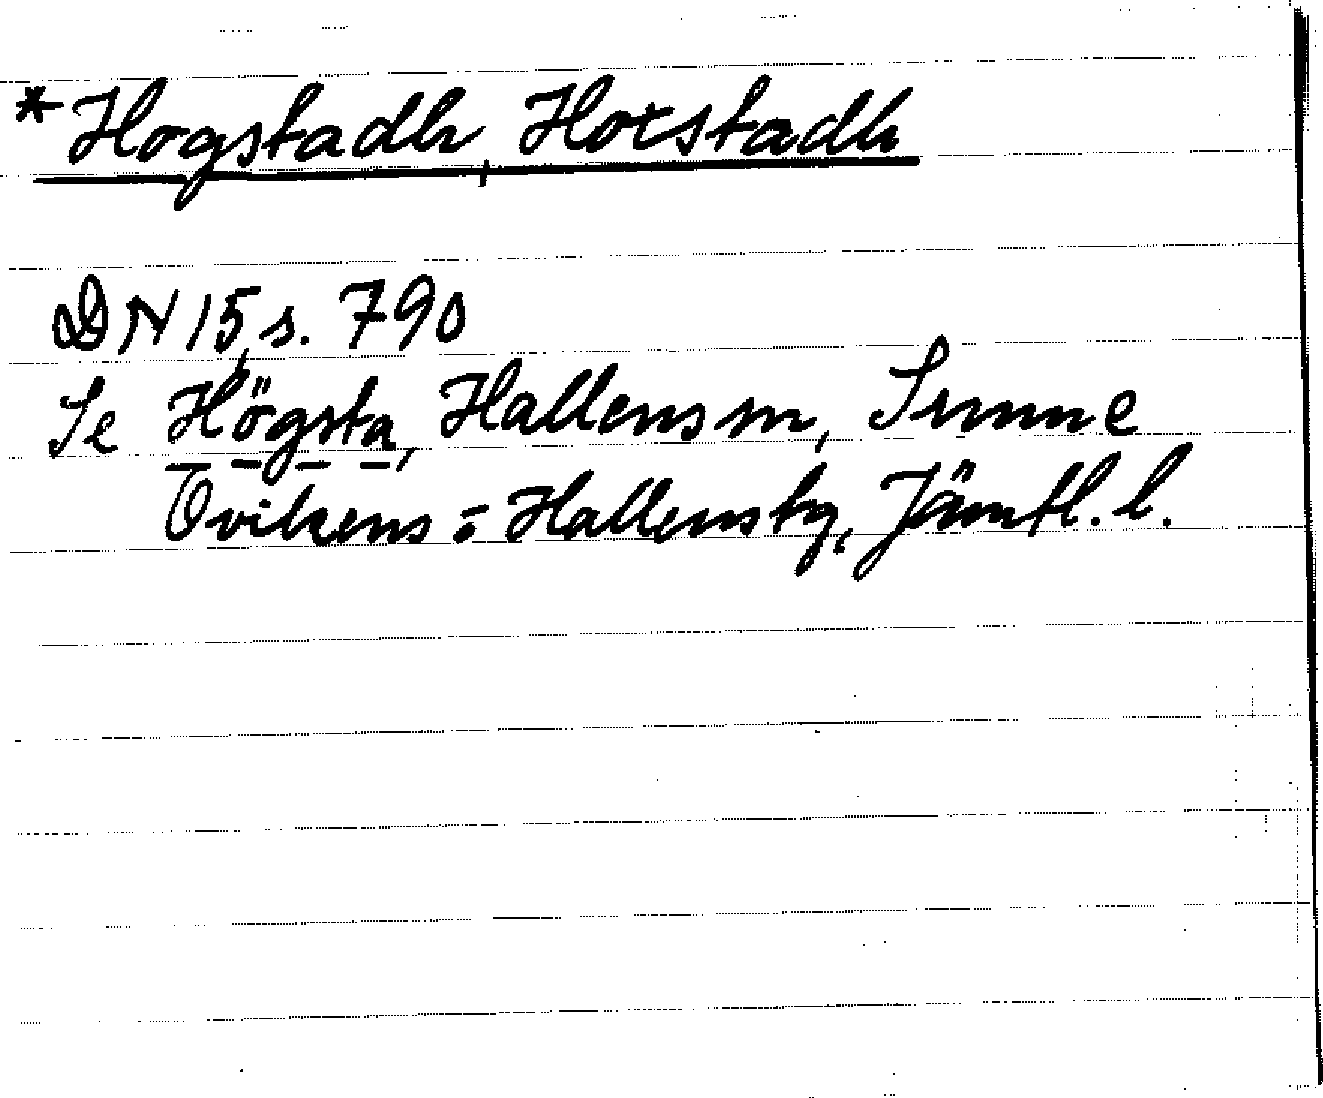 *Hogstadh, Hotstadh
DN 15, s. 790
Se Högsta, Hallens sn, Sunne
Ovikens o Hallens tg, Jämtl. l.